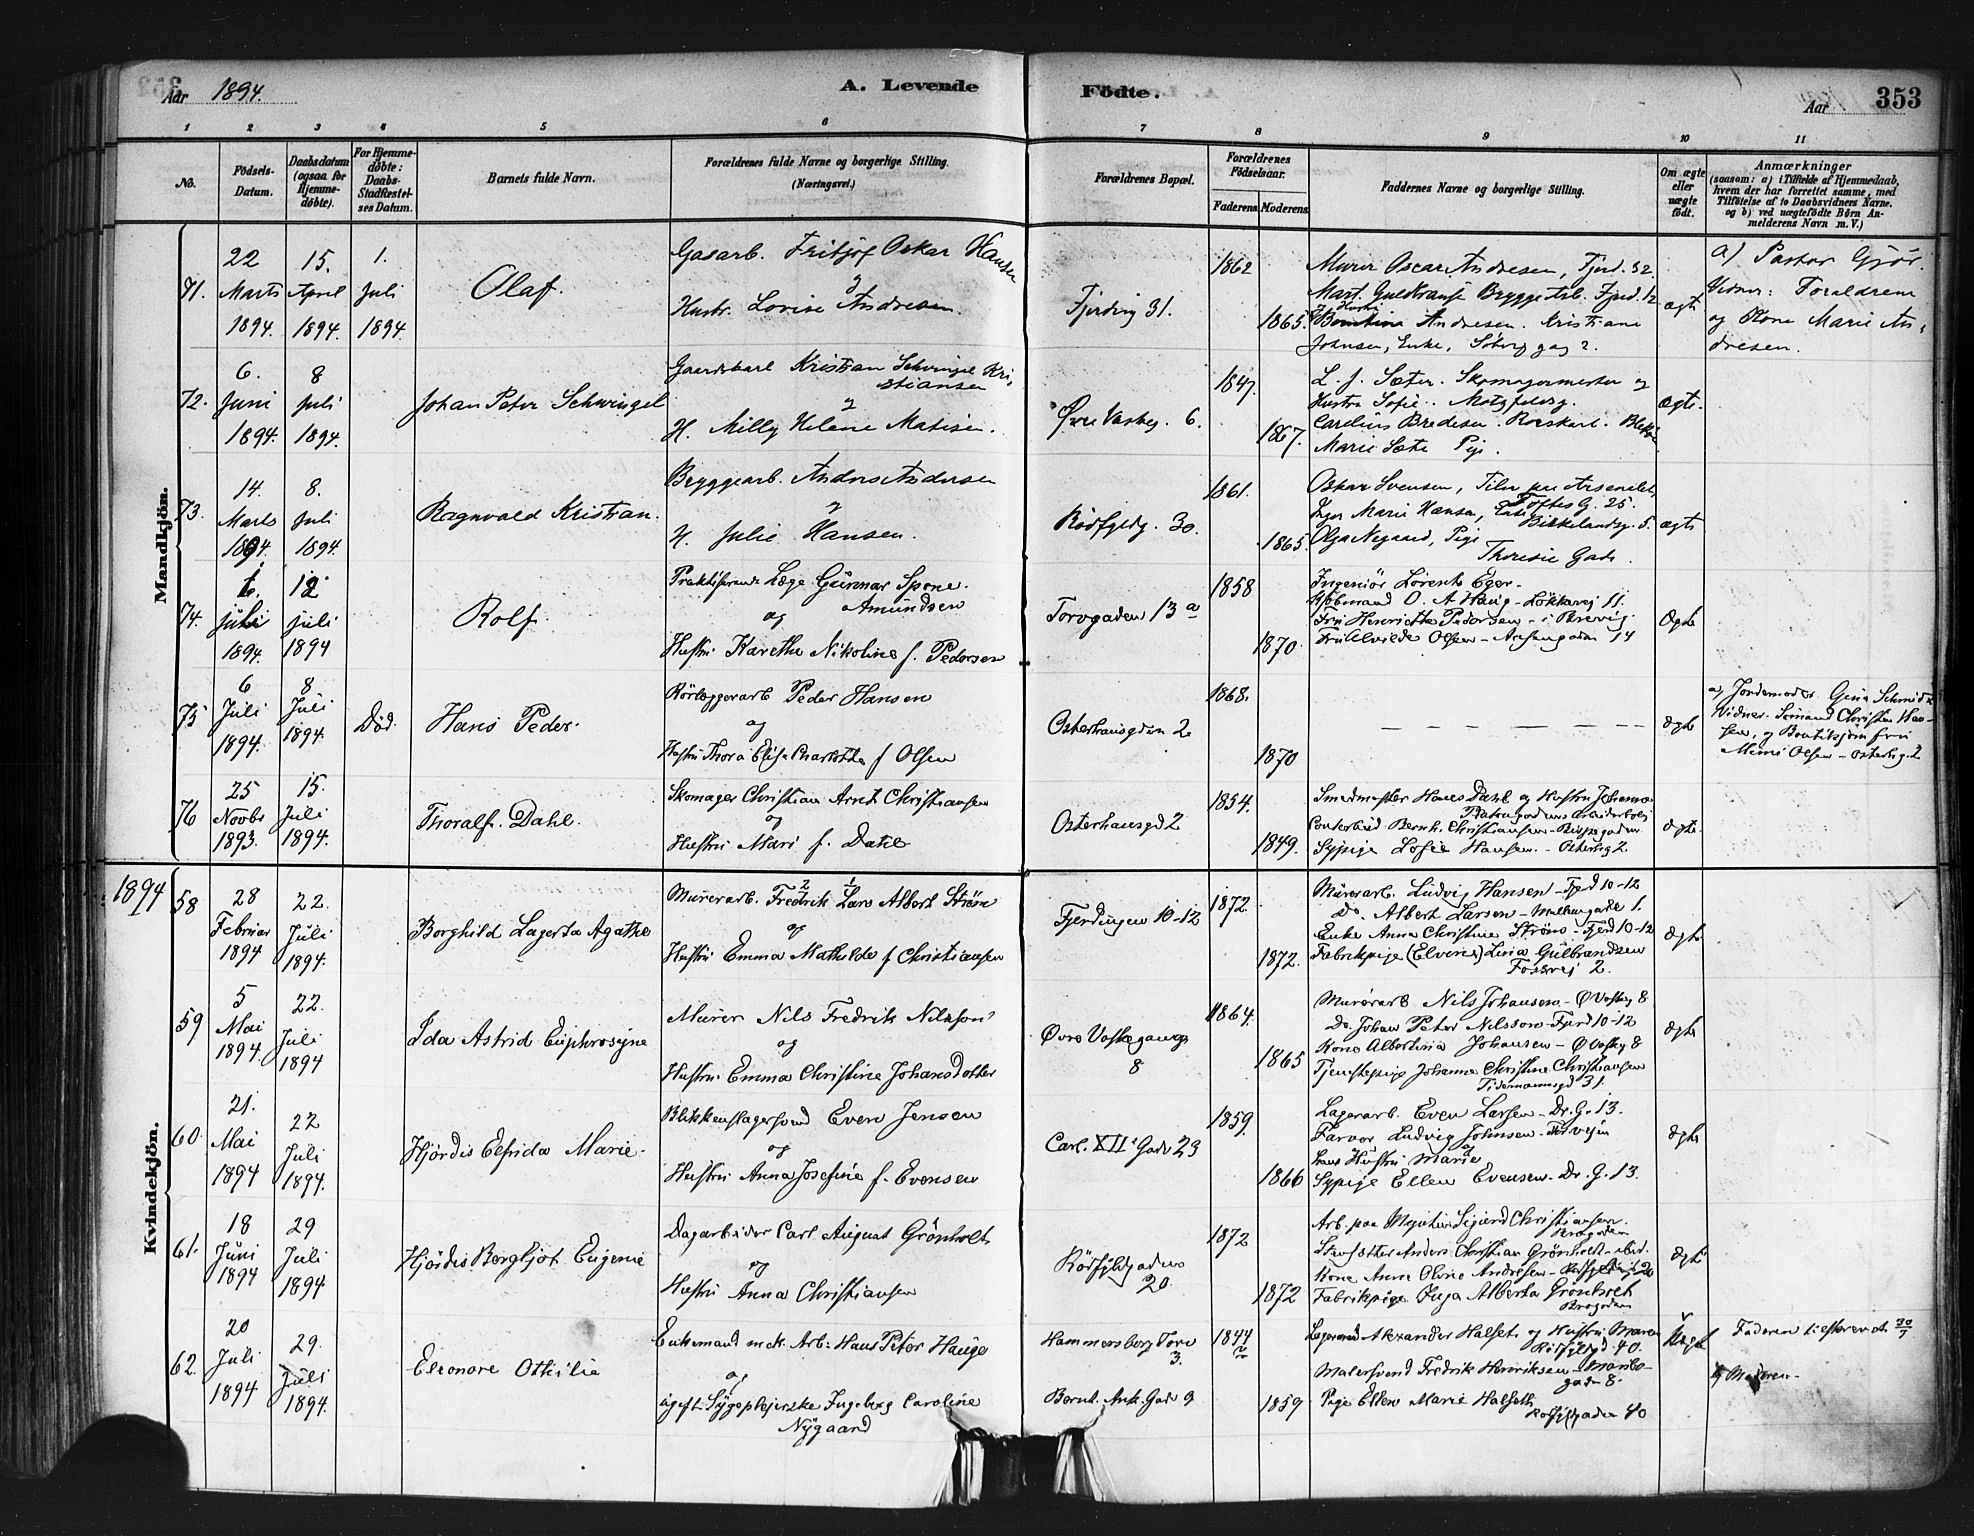 Aar 1894.
A. Levende Födte.
Aar
353
1 2 3 4 5 6 7 8 9 10 11
No.
Födsels-Datum.
Daabsdatum (ogsaa for Hjemme-döbte).
For Hjemme-döbte: Daabs-Stadfæstel-ses Datum.
Barnets fulde Navn.
Forældrenes fulde Navne og borgerlige Stilling. (Næringsvei.)
Forældrenes Bopæl.
Forældrenes Födselsaar.
Faderens Moderens
Faddernes Navne og borgerlige Stilling.
Om ægte eller uægte födt.
Anmærkninger
(saasom: a) i Tilfælde af Hjemmedaab, hvem der har forrettet samme, med Tilföielse af to Daabsvidners Navne. og b) ved uægtefödte Börn An-melderens Navn m. V.)
Mandkjön.
71.
22 Marts 1894.
15. April 1894.
1. Juli 1894.
Olaf.
Gasarb. Fritjof Oskar Hansen
og
Hustr. Lovise Andresen.
Fjerding 31.
1862
1865.
Murer Oscar Andresen, Fjerd. 32.
Johnsen, Enke,
ægte
a) Pastor Gjør.
Vidner: Forældrene
og Kone Marie An-
dresen.
72.
6. Juni 1894.
8 Juli 1894.
Johan Peter Schwingel
Gaardskarl Kristian Schwingel Kri-
stiansen
og
H. Milly Helene Matisen.
Øvre Vaskeg. 6.
1847.
1867.
L. J. Sæter. Skomagermester og
Hustru Sofie. Motzfeldsg.
Marie Sæter Pige.
ægte.
73.
14. Marts 1894.
8. Juli 1894.
Ragnvald Kristian.
Bryggearb. Anders Andersen
og
H. Julie Hansen.
Rödfyldg. 30.
1861.
1865.
Oskar Svensen,
Toftes G. 25.
Inger Marie Hansen, Birkelandsg. 5.
Olga Nygaard, Pige
Theresie Gade.
ægte
74.
Juli 1894.
12 Juli 1894
Rolf.
Praktiserende Læge Gunnar Spone
Amundsen
og
Hustru Karethe Nikoline f. Pedersen
Torvgaden 13 a
1858
1870.
Ingeniör Lorents Eger.
Kjöbmand O. A. Haug - Lökkevej 11.
Fru Henriette Pedersen - i Brevig
Olsen - 14
Ægte
75
6 Juli 1894.
8 Juli 1894.
Död.
Hans Peder.
Rörlæggerarb Peder Hansen
og
Hustru Thora Elise Charlotte f Olsen
Osterhausgaden 2
1868.
1870
ægte
a) Jordemoder Gina Schmidt
Vidner. Sömand Christian Han-
sen, og
Mimi Olsen - Osterhsg. 2
76
25 Novbr 1893.
15. Juli 1894.
Thoralf. Dahl.
Skomager Christian Arnt Christiansen
og
Hustru Mari f. Dahl
Osterhausgd 2
1854.
1849.
Smedmester Hans Dahl og Hustru Johanne
Contorbud Bernh. Christiansen -
Sypige Lovise Hansen. - Osterhsg 2
ægte.
Kvindekjön.
1894
58
28 Februar 1894
22. Juli 1894.
Borghild Lagerta Agathe
Murerarb. Fredrik Lars Albert Ström
og
Hustru Emma Mathilde f Christiansen
Fjerdingen 10-12
1872.
1872.
Murerarb. Ludvig Hansen - Fjerd 10-12
Do. Albert Larsen - Möllergade 1.
Enke Anna Christine Ström - Fjerd 10-12
Fabrikpige (Elvine) Lina Gulbrandsen
Fossvej 2.
ægte
59
5 Mai 1894.
22. Juli 1894
Ida Astrid Euphrosyne
Murer Nils Fredrik Nilsson
og
Hustru Emma Christine Johansdotter
Övre Vaskegang
8
1864.
1865
Murerarb Nils Johansen - Ö Vaskeg 8
Do. Johan Peter Nilsson - Fjerd 10-12
Kone Albertina Johansen - Ö Vaskg 8
Tjenstepige Johanne Christine Christiansen
Tidemannsgd 31.
ægte
60.
21. Mai 1894
22 Juli 1894.
Hjördis Elfrida Marie.
Blikkenslagersvend Even Jensen
og
Hustru Anna Josefine f. Evensen
Carl XII's Gade 23
1859.
1866
Lagerarb. Even Larsen - Dr. G. 13.
Farver Ludvig Johnsen -
og
hans Hustru Marie
Sypige Ellen Evensen - Dr. G. 13.
ægte
61.
18 Juni 1894
29 Juli 1894
Hjördis Bergljot Eugenie
Dagarbeider Carl August Grönholt
og
Hustru Anna Christiansen
Rödfyldgaden
20.
1872
1872
Arb. paa Sigurd Christiansen.
Stensætter Anders Christian Grönholt - ibid.
Kone Anna Olvine Andresen -
Fabrikpige Inga Alberta Grönholt
ægte
62.
20 Juli 1894
29. Juli 1894.
Eleonore Othilie
Enkemand mek. Arb: Hans Peter Hauge
og
ugift Sygeplejerske Ingeborg Caroline
Nygaard
Hammersborg Torv
3.
Bernt. Ank. Gade 9
1844
1859
Lagermand Alexander Halset og Hustru Maren
Rödfyldgd 40.
Malersvend Fredrik Henriksen - Maribo-
gaden 8.
Pige Ellen Marie Halseth
Rödfyldgaden 40
Uægte
Faderen tilstævnet 30/7
b) Moderen.